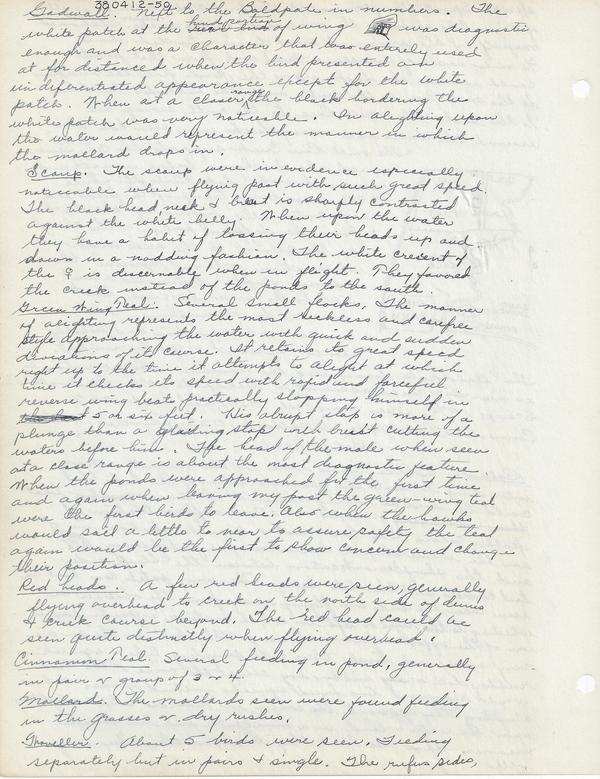 380412-50
Gadwall. Next to the Baldpate in numbers. The
white patch at the hind portion of wing was diagnostic
enough and was a character that was entirely used
at for distanced when the bird presented an
undiferentiated appearance except for the white
patch. When at a closer range the black bordering the
white patch was very noticeable. In alighting upon
the water would represent the manner in which
the mallard drops in.
Scaup. The scaup were in evidence especially
noticeable when flying past with such great speed.
The black head, neck & breast is sharply contrasted
against the white belly. When upon the water
they have a habit of tossing their heads up and
down in a nodding fashion. The white crescent of
the ♀ is discernable when in flight. They favored
the creek instead of the ponds to the south.
Green Wing Teal. Several small flocks, The manner
of alighting represents the most reckless and carefree
style approaching the water with quick and sudden
deviations of it course. It retains to great speed
right up to the time it attempts to alight at which
time it checks its speed with rapid and forceful
reverse wing beats practically stopping himself in
5 or six feet. His abrupt stop is more of a
plunge than a stop with breast cutting the
waters before him. The head of the male when seen
at a close range is about the most diagnostic feature.
When the ponds were approached for the first time
and again when leaving my post the green-wing teal
were the first birds to leave. Also when the hawks
would sail a little to near to assure safety the teal
again would be the first to show concern and change
their position.
Red heads.. A few red heads were seen, generally
flying overhead to creek on the north side of dunes
& creek course beyond. The red head could be
seen quite distinctly when flying overhead.
Cinnamon Teal. Several feeding in pond, generally
in pair or group of 3 or 4.
Mallards. The mallards seen were found feeding
in the grasses or dry rushes.
Shoveller. About 5 birds were seen. Feeding
separately but in pairs & single. The rufus sides,